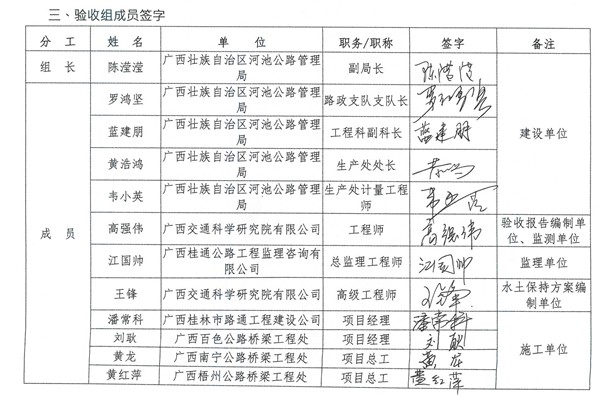 三、验收组成员签字
分 工 姓 名 单 位 职务/职称 签字 备注
组 长 陈滢滢 广西壮族自治区河池公路管理局 副局长 陈滢滢 建设单位
成 员
罗鸿坚 广西壮族自治区河池公路管理局 路政支队支队长
蓝建朋 广西壮族自治区河池公路管理局 工程科副科长 蓝建朋
黄浩鸿 广西壮族自治区河池公路管理局 生产处处长
韦小英 广西壮族自治区河池公路管理局 生产处计量工程师
高强伟 广西交通科学研究院有限公司 工程师 高强伟 验收报告编制单位、监测单位
江国帅 广西桂通公路工程监理咨询有限公司 总监理工程师 江国帅 监理单位
王锋 广西交通科学研究院有限公司 高级工程师 王锋 水土保持方案编制单位
潘常科 广西桂林市路通工程建设公司 项目经理 潘常科 施工单位
刘耿 广西百色公路桥梁工程处 项目经理 刘耿
黄龙 广西南宁公路桥梁工程处 项目总工 黄龙
黄红萍 广西梧州公路桥梁工程处 项目总工 黄红萍